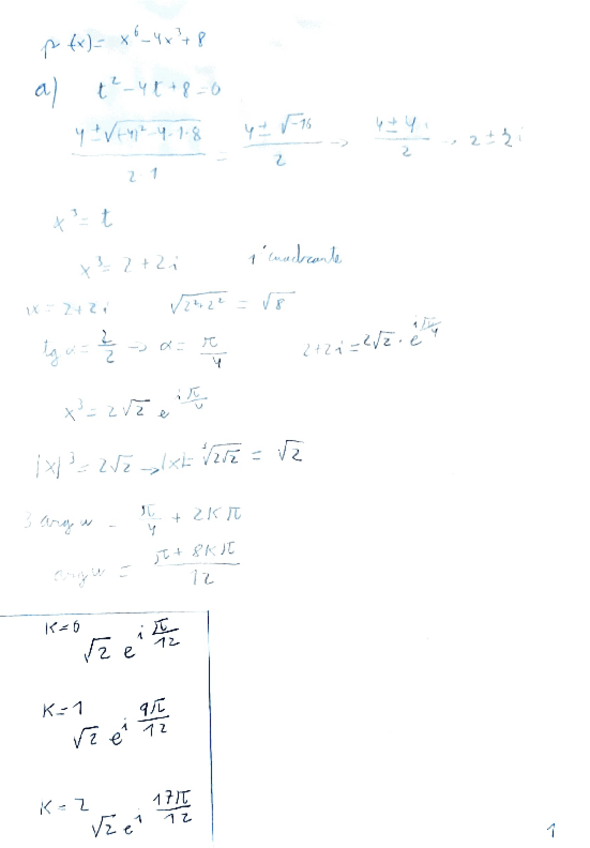 p(x) = x^6 - 4x^3 + 8
a) t^2 - 4t + 8 = 0
(4 ± √((-4)^2 - 4·1·8)) / (2·1) = (4 ± √-16) / 2 → (4 ± 4i) / 2 → 2 ± 2i
x^3 = t
x^3 = 2 + 2i 1º cuadrante
= 2 + 2i √(2^2 + 2^2) = √8
tg α = 2/2 → α = π/4 2 + 2i = 2√2 · e^(iπ/4)
x^3 = 2√2 e^(iπ/4)
|x|^3 = 2√2 → |x| = ∛(2√2) = √2
3 arg w = π/4 + 2Kπ
arg w = (π + 8Kπ) / 12
K=0
√2 e^(i π/12)
K=1
√2 e^(i 9π/12)
K=2
√2 e^(i 17π/12)
1